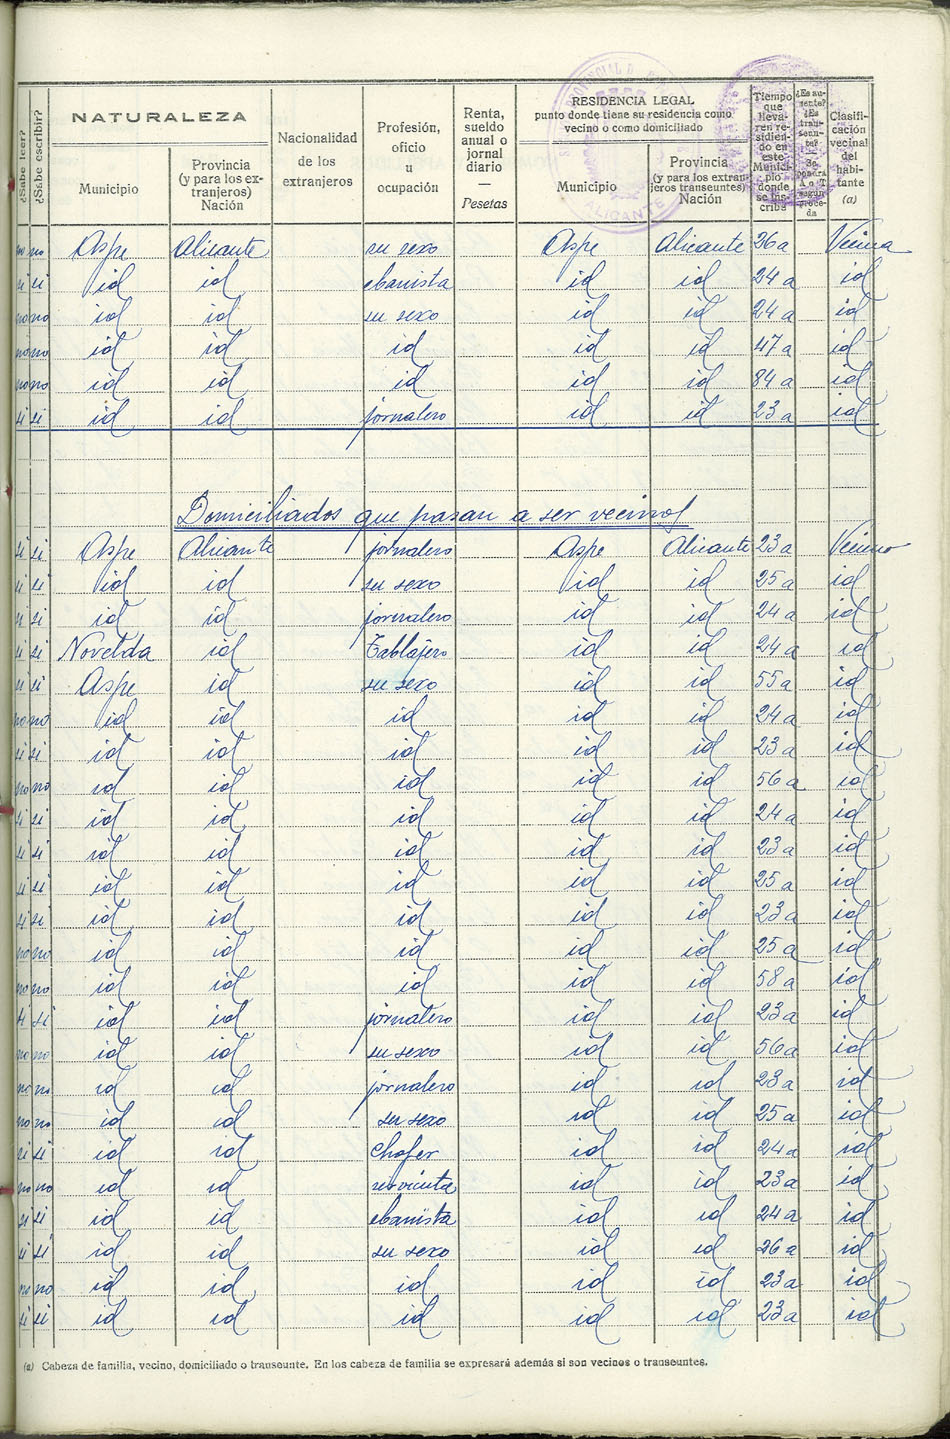 ¿Sabe leer?
¿Sabe escribir?
NATURALEZA
Municipio
Provincia (y para los extranjeros) Nación
Nacionalidad de los extranjeros
Profesión, oficio u ocupación
Renta, sueldo anual o jornal diario — Pesetas
RESIDENCIA LEGAL
punto donde tiene su residencia como vecino o como domiciliado
Municipio
Provincia (y para los extranjeros transeuntes) Nación
Tiempo que llevaren residiendo en este Municipio donde se inscribe
Clasificación vecinal del habitante (a)
ALICANTE
no no Aspe Alicante su sexo Aspe Alicante 26 a Vecina
si si id id ebanista id id 24 a id
no no id id su sexo id id 24 a id
no no id id id id id 47 a id
no no id id id id id 84 a id
si si id id jornalero id id 23 a id
Domiciliados que pasan a ser vecinos
si si Aspe Alicante jornalero Aspe Alicante 23 a Vecino
si si id id su sexo id id 25 a id
si si id id jornalero id id 24 a id
si si Novelda id Tablajero id id 24 a id
si si Aspe id su sexo id id 55 a id
no no id id id id id 24 a id
si si id id id id id 23 a id
no no id id id id id 56 a id
si si id id id id id 24 a id
si si id id id id id 23 a id
si si id id id id id 25 a id
si si id id id id id 23 a id
no no id id id id id 25 a id
no no id id id id id 58 a id
si si id id jornalero id id 23 a id
no no id id su sexo id id 56 a id
no no id id jornalero id id 23 a id
no no id id su sexo id id 25 a id
si si id id Chofer id id 24 a id
no no id id sirvienta id id 23 a id
si si id id ebanista id id 24 a id
si si id id su sexo id id 26 a id
no no id id id id id 23 a id
si si id id id id id 23 a id
(a) Cabeza de familia, vecino, domiciliado o transeunte. En los cabeza de familia se expresará además si son vecinos o transeuntes.